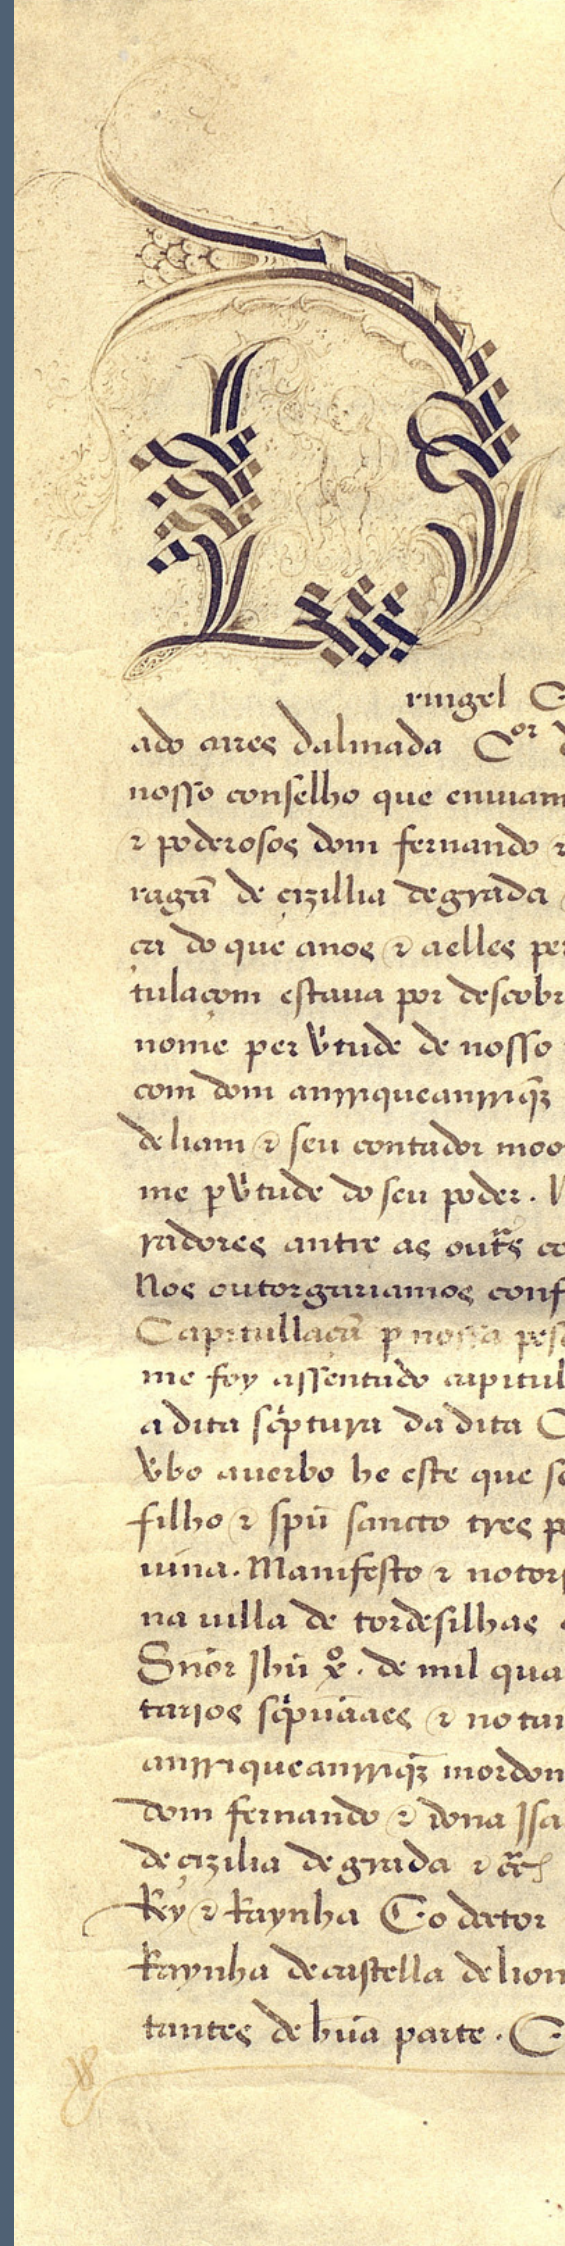 D
ringel
ado aires dalmada Cor
nosso conselho que enuiam
⁊ poderosos dom fernando ⁊
ragã de cizillia de grada
ca do que anos ⁊ aelles per
tulacom estaua por descobr
nome per v̉tude de nosso
com dom anrrique anrriq̃z
de liam ⁊ seu contador moo
me p v̉tude do seu poder.
radores antre as outs̃ co
Nos outorgariamos conf
Capitullaçã p nossa pes
me foy assentado capitul
a dita sc̉ptura da dita C
v̉bo auerbo he este que se
filho ⁊ spũ sancto tres p
uina. Manifesto ⁊ notor
na uilla de tordesilhas
Sñor Jhũ xº. de mil qua
tarios sc̉puãaes ⁊ notai
anrrique anrriq̃z mordom
dom fernando ⁊ dona Isa
de cizilia de grada ⁊ c̃
Rey ⁊ Raynha E o doctor
Raynha de castella de liom
tantes de hũa parte. E